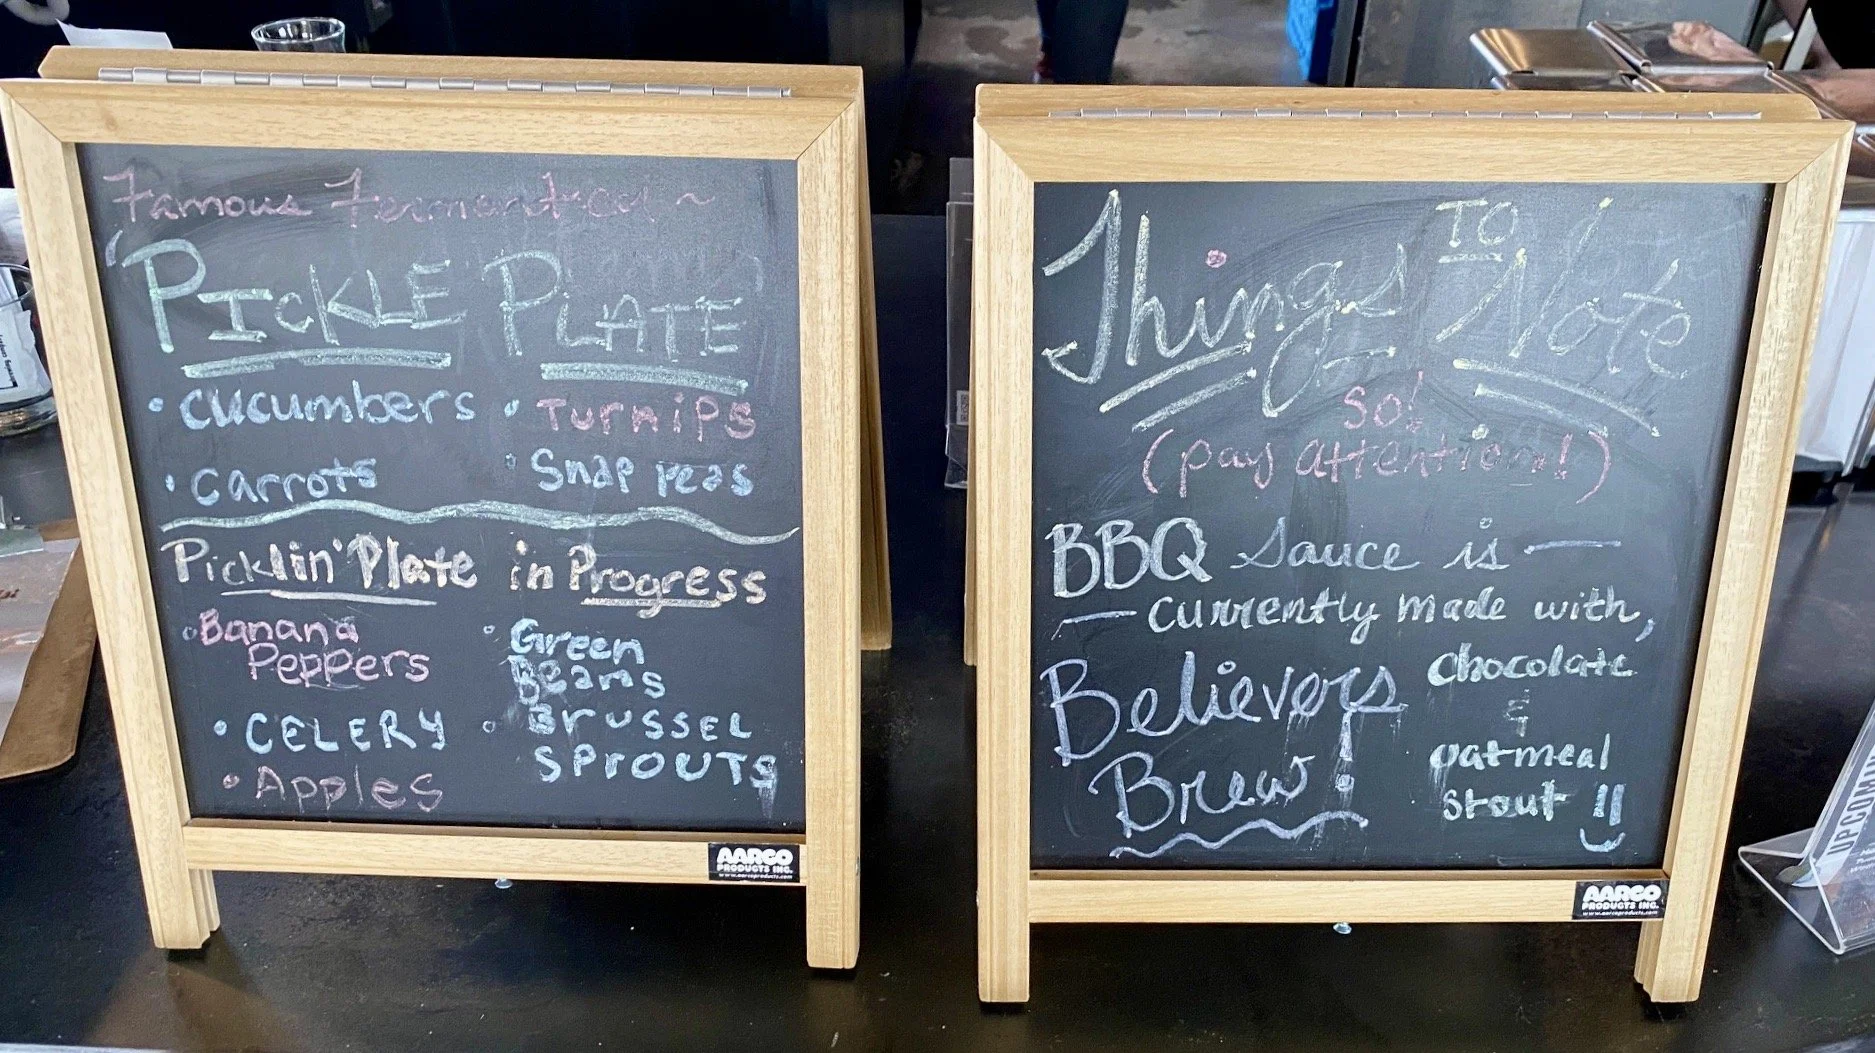 Famous Fermented ~
PICKLE PLATE
• Cucumbers
• Carrots
• Turnips
• Snap peas
Picklin' Plate in Progress
• Banana
Peppers
• CELERY
• Apples
• Green
Beans
• BRUSSEL
SPROUTS
AARCO
PRODUCTS INC.
www.aarcoproducts.com
Things TO Note
SO!
(pay attention!)
BBQ Sauce is —
— currently made with,
Believers
Brew!
chocolate
&
oatmeal
stout !!
AARCO
PRODUCTS INC.
www.aarcoproducts.com